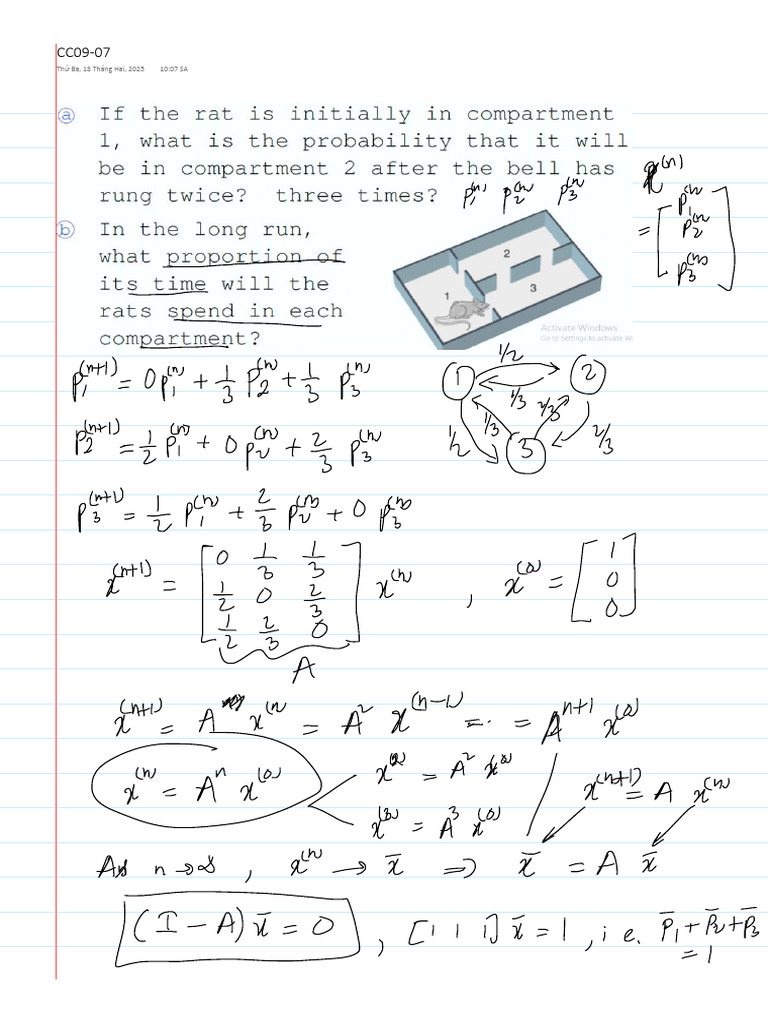 CC09-07
Thứ Ba, 18 Tháng Hai, 2025 10:07 SA
a If the rat is initially in compartment
1, what is the probability that it will
be in compartment 2 after the bell has
rung twice? three times? P₁⁽ⁿ⁾ P₂⁽ⁿ⁾ P₃⁽ⁿ⁾
x⁽ⁿ⁾ = [P₁⁽ⁿ⁾ P₂⁽ⁿ⁾ P₃⁽ⁿ⁾]
b In the long run,
what proportion of
its time will the
rats spend in each
compartment?
1 2 3
Activate Windows
Go to Settings to activate Wi
P₁⁽ⁿ⁺¹⁾ = 0P₁⁽ⁿ⁾ + 1/3 P₂⁽ⁿ⁾ + 1/3 P₃⁽ⁿ⁾
P₂⁽ⁿ⁺¹⁾ = 1/2 P₁⁽ⁿ⁾ + 0 P₂⁽ⁿ⁾ + 2/3 P₃⁽ⁿ⁾
P₃⁽ⁿ⁺¹⁾ = 1/2 P₁⁽ⁿ⁾ + 2/3 P₂⁽ⁿ⁾ + 0 P₃⁽ⁿ⁾
1/2
1 2
1/3
1/2 1/3 2/3 2/3
3
x⁽ⁿ⁺¹⁾ = [0 1/3 1/3; 1/2 0 2/3; 1/2 2/3 0] x⁽ⁿ⁾ , x⁽⁰⁾ = [1 0 0]
A
x⁽ⁿ⁺¹⁾ = A x⁽ⁿ⁾ = A² x⁽ⁿ⁻¹⁾ = ... = Aⁿ⁺¹ x⁽⁰⁾
x⁽ⁿ⁾ = Aⁿ x⁽⁰⁾
x⁽²⁾ = A² x⁽⁰⁾
x⁽³⁾ = A³ x⁽⁰⁾
x⁽ⁿ⁺¹⁾ = A x⁽ⁿ⁾
As n → ∞, x⁽ⁿ⁾ → x̄ ⇒ x̄ = A x̄
(I − A) x̄ = 0 , [1 1 1] x̄ = 1 , i.e. P̄₁ + P̄₂ + P̄₃
= 1